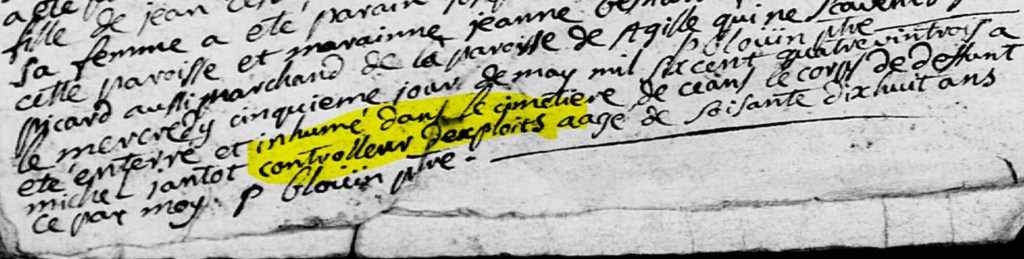 fille de jean
sa femme a ete parain
cette paroisse et marainne jeanne
Picard aussi marchand de la paroisse de st gille qui ne scavent
P blouin ptre
le mercredy cinquieme jour de may mil six cent quatre vint trois a
ete enterré et inhumé dans le cimetiere de ceans le corps de deffunt
michel jantot controlleur dexploits aage de soisante dixhuit ans
ce par moy. P blouin ptre.